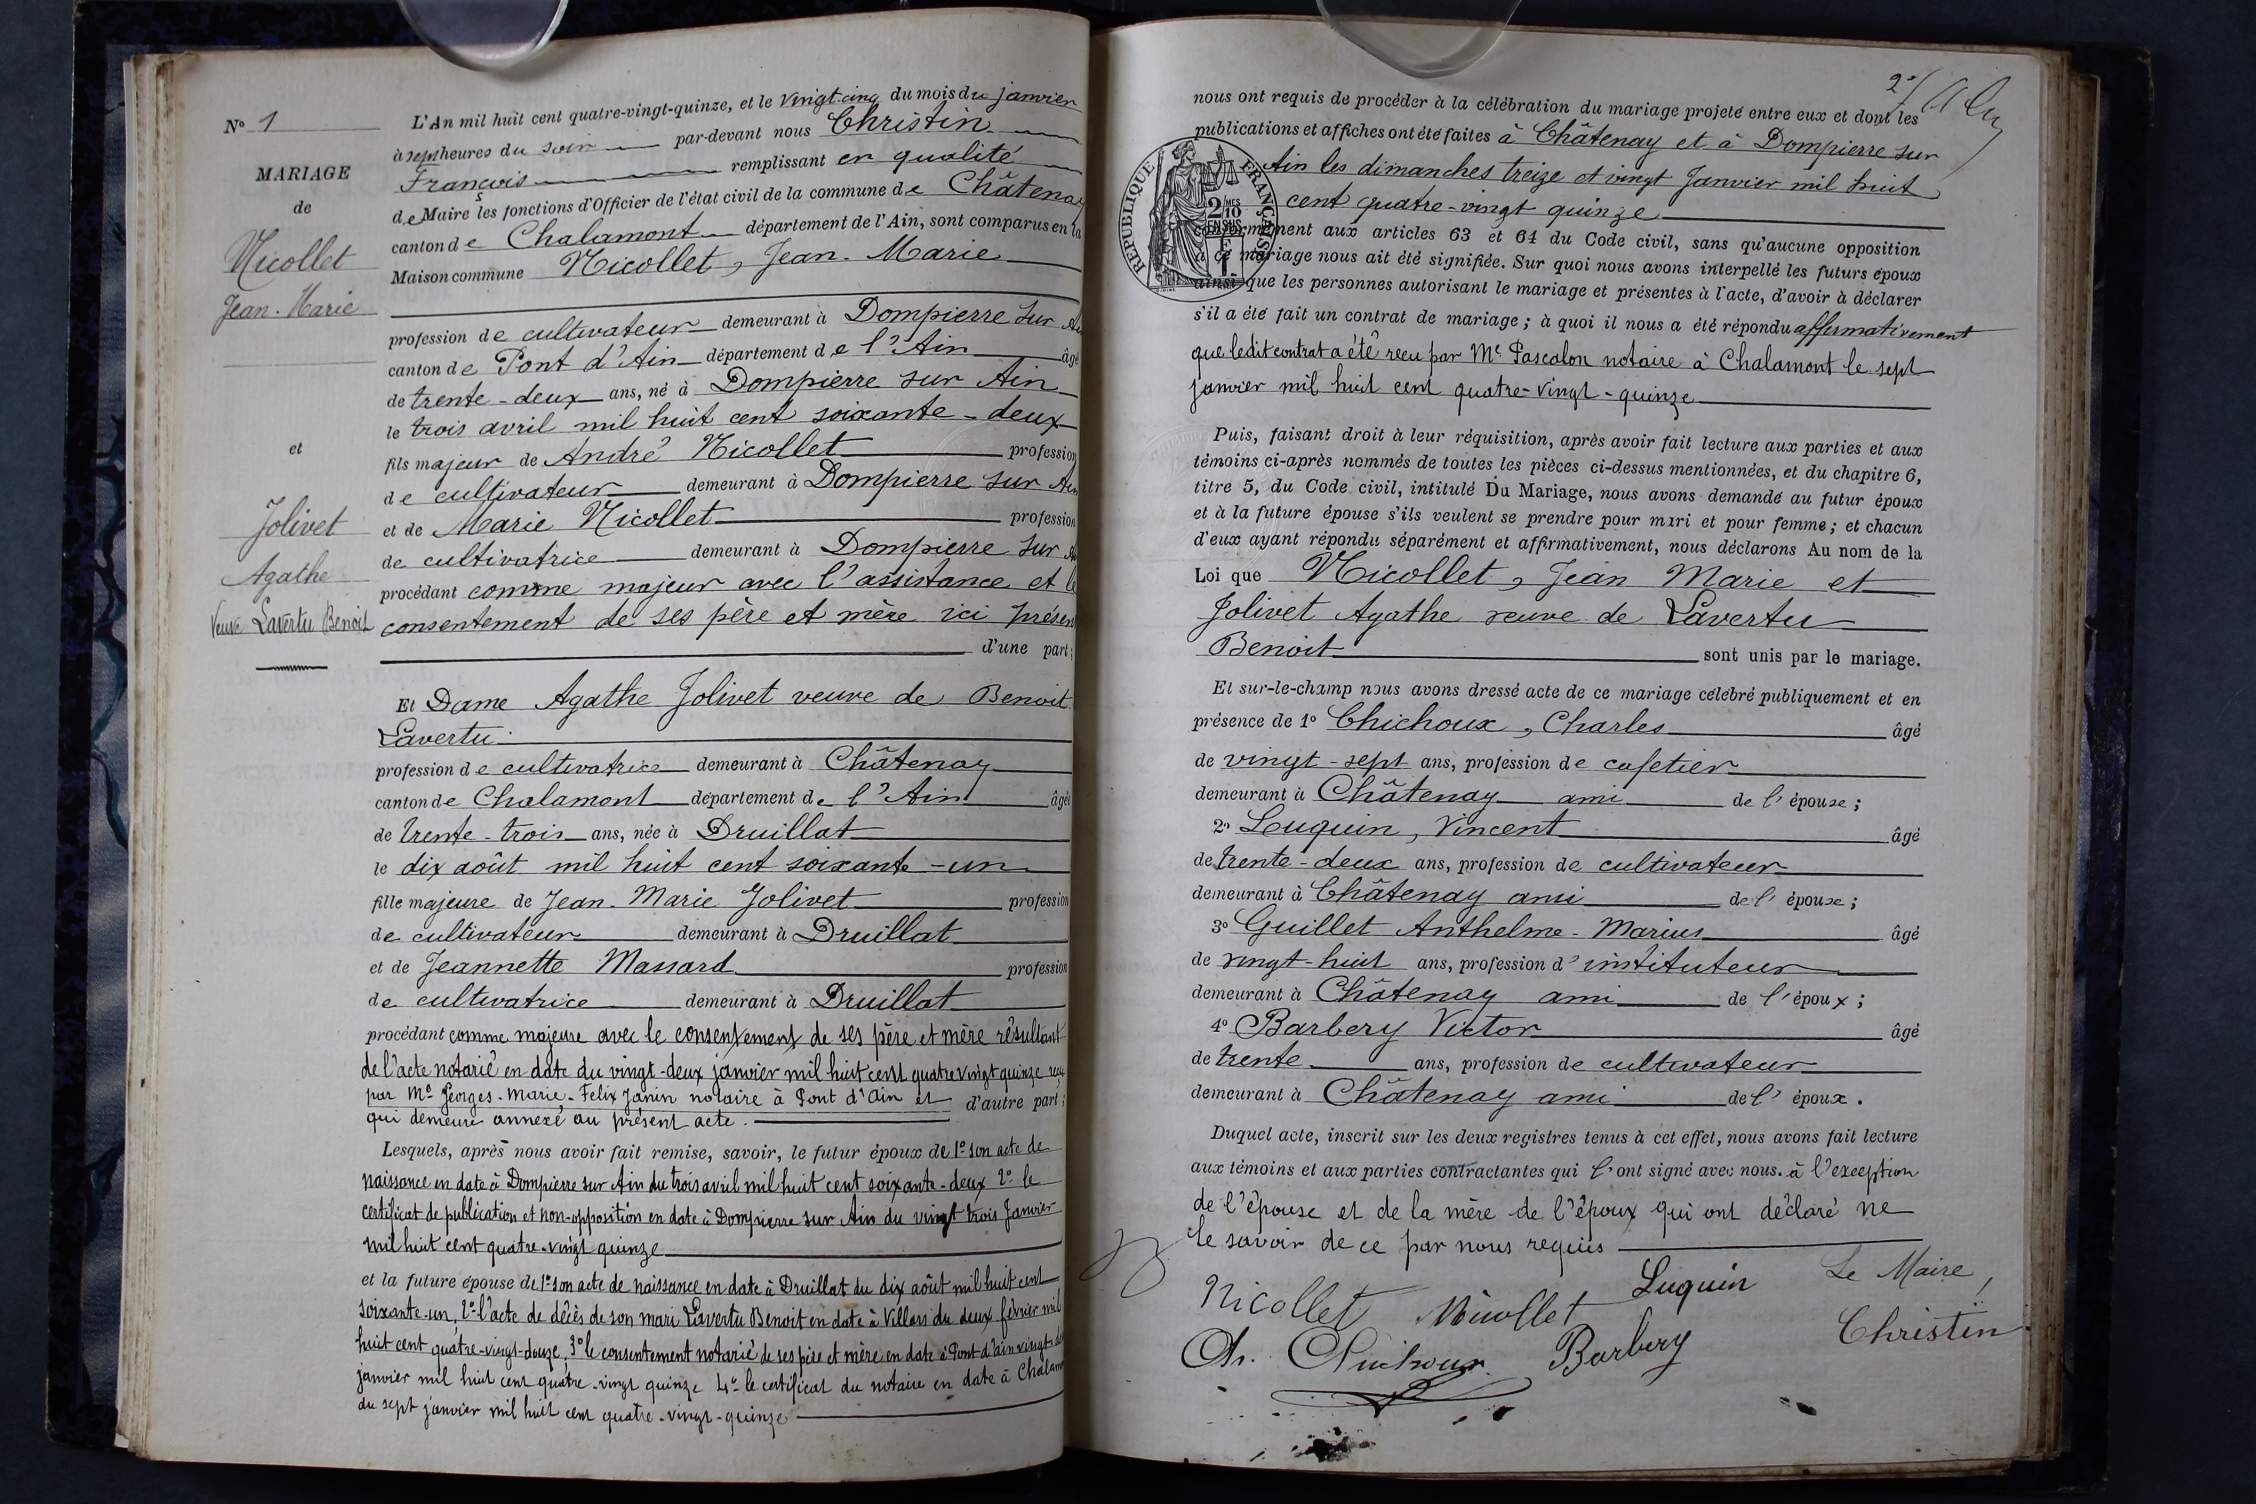 N° 1
MARIAGE
de
Nicollet
Jean-Marie
et
Jolivet
Agathe
Veuve Lavertu Benoit
L'An mil huit cent quatre-vingt-quinze, et le vingt-cinq du mois du janvier
à sept heures du soir par-devant nous Christin
François remplissant en qualité
de Maire les fonctions d'Officier de l'état civil de la commune de Châtenay
canton de Chalamont département de l'Ain, sont comparus en la
Maison commune Nicollet, Jean-Marie
profession de cultivateur demeurant à Dompierre sur Ain
canton de Pont d'Ain département de l'Ain âgé
de trente-deux ans, né à Dompierre sur Ain
le trois avril mil huit cent soixante-deux
fils majeur de André Nicollet profession
de cultivateur demeurant à Dompierre sur Ain
et de Marie Nicollet profession
de cultivatrice demeurant à Dompierre sur
procédant comme majeur avec l'assistance et le
consentement de ses père et mère ici présen
d'une part;
Et Dame Agathe Jolivet veuve de Benoit
Lavertu.
profession de cultivatrice demeurant à Châtenay
canton de Chalamont département de l'Ain âgée
de trente-trois ans, née à Druillat
le dix août mil huit cent soixante-un
fille majeure de Jean-Marie Jolivet profession
de cultivateur demeurant à Druillat
et de Jeannette Massard profession
de cultivatrice demeurant à Druillat
procédant comme majeure avec le consentement de ses père et mère résultant
de l'acte notarié en date du vingt-deux janvier mil huit cent quatre vingt quinze reçu
par Me Georges-Marie-Felix Janin notaire à Pont d'Ain et d'autre part;
qui demeure annexé au présent acte.
Lesquels, après nous avoir fait remise, savoir, le futur époux de 1° son acte de
naissance en date à Dompierre sur Ain du trois avril mil huit cent soixante-deux 2° le
certificat de publication et non-opposition en date à Dompierre sur Ain du vingt trois Janvier
mil huit cent quatre-vingt quinze
et la future épouse de 1° son acte de naissance en date à Druillat du dix août mil huit cent
soixante-un, 2° l'acte de décès de son mari Lavertu Benoit en date à Villars du deux février mil
huit cent quatre-vingt-douze, 3° le consentement notarié de ses père et mère en date à Pont d'ain vingt-d
janvier mil huit cent quatre-vingt quinze 4° le certificat du notaire en date à Chalam
du sept janvier mil huit cent quatre-vingt-quinze
2
nous ont requis de procéder à la célébration du mariage projeté entre eux et dont les
publications et affiches ont été faites à Châtenay et à Dompierre sur
Ain les dimanches treize et vingt Janvier mil huit
cent quatre-vingt quinze
RÉPUBLIQUE FRANÇAISE
2/10 MES EN SUS
conformément aux articles 63 et 64 du Code civil, sans qu'aucune opposition
à ce mariage nous ait été signifiée. Sur quoi nous avons interpellé les futurs époux
ainsi que les personnes autorisant le mariage et présentes à l'acte, d'avoir à déclarer
s'il a été fait un contrat de mariage; à quoi il nous a été répondu affirmativement
que ledit contrat a été reçu par Me Pascalon notaire à Chalamont le sept
janvier mil huit cent quatre-vingt-quinze
Puis, faisant droit à leur réquisition, après avoir fait lecture aux parties et aux
témoins ci-après nommés de toutes les pièces ci-dessus mentionnées, et du chapitre 6,
titre 5, du Code civil, intitulé Du Mariage, nous avons demandé au futur époux
et à la future épouse s'ils veulent se prendre pour mari et pour femme; et chacun
d'eux ayant répondu séparément et affirmativement, nous déclarons Au nom de la
Loi que Nicollet, Jean Marie et
Jolivet Agathe veuve de Lavertu
Benoit sont unis par le mariage.
Et sur-le-champ nous avons dressé acte de ce mariage célébré publiquement et en
présence de 1° Chichoux, Charles âgé
de vingt-sept ans, profession de cafetier
demeurant à Châtenay ami de l'épouse;
2° Luquin, Vincent âgé
de trente-deux ans, profession de cultivateur
demeurant à Châtenay ami de l'épouse;
3° Guillet Anthelme-Marius âgé
de vingt-huit ans, profession d'instituteur
demeurant à Châtenay ami de l'époux;
4° Barbery Victor âgé
de trente ans, profession de cultivateur
demeurant à Châtenay ami de l'époux.
Duquel acte, inscrit sur les deux registres tenus à cet effet, nous avons fait lecture
aux témoins et aux parties contractantes qui l'ont signé avec nous. à l'exception
de l'épouse et de la mère de l'époux qui ont déclaré ne
le savoir de ce par nous requis
Nicollet Nicollet Luquin Le Maire,
Ch. Chichoux Barbery Christin